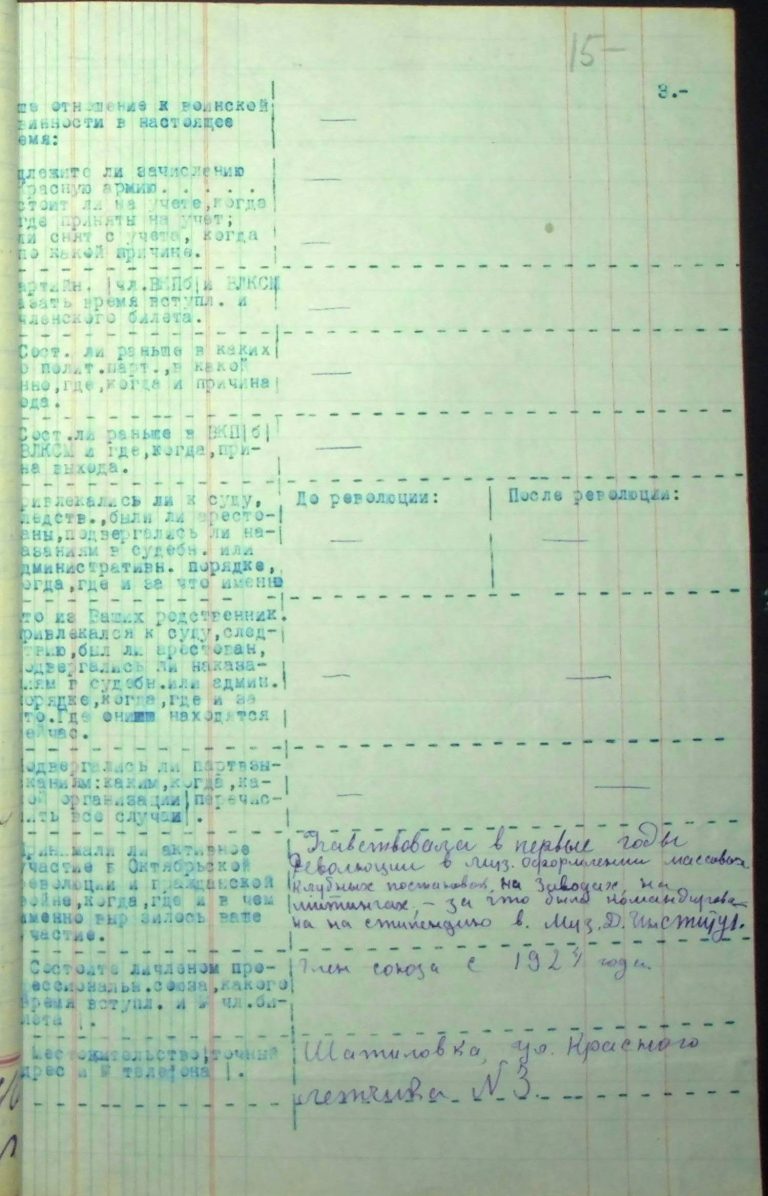 15-
3.-
ше отношение к воинской
винности в настоящее
емя:
длежите ли зачислению
красную армию. . . . .
стоит ли на учете,когда
где приняты на учет;
ли снят с учета, когда
по какой причине.
артийн. |чл.ВКПб|и ВЛКСМ
азать время вступл. и
членского билета.
Сост. ли раньше в каких
о полит.парт.,в какой
нно,где,когда и причина
ода.
Сост.ли раньше в ВКП|б|
ВЛКСМ и где,когда,при-
на выхода.
ривлекались ли к суду,
ледств.,были ли аресто-
аны,подвергались ли на-
азаниям в судебн. или
дминистративн. порядке,
огда,где и за что именно
До революции:
После революции:
то из Ваших родственник.
ривлекался к суду,след-
твию,был ли арестован,
одвергались ли наказа-
иям в судебн.или админ.
орядке,когда,где и за
то.Где они находятся
ейчас.
одвергались ли партвзы-
каниям:каким,когда,ка-
ой организации|перечис-
ить все случаи|.
ринимали ли активное
участие в Октябрьской
революции и гражданской
войне,когда,где и в чем
именно выр зилось ваше
участие.
Участвовала в первые годы
Революции в муз. оформлении массовых
клубных постановок, на заводах, на
митингах, – за что была командирова-
на на стипендию в Муз.Д.Институт.
Состоите личленом про-
фессиональн.союза,какого
время вступл. и № чл.би-
лета |.
Член союза с 1924 года.
Местожительство|точный
дрес и № телефона |.
Шатиловка, ул. Красного
летчика N 3.